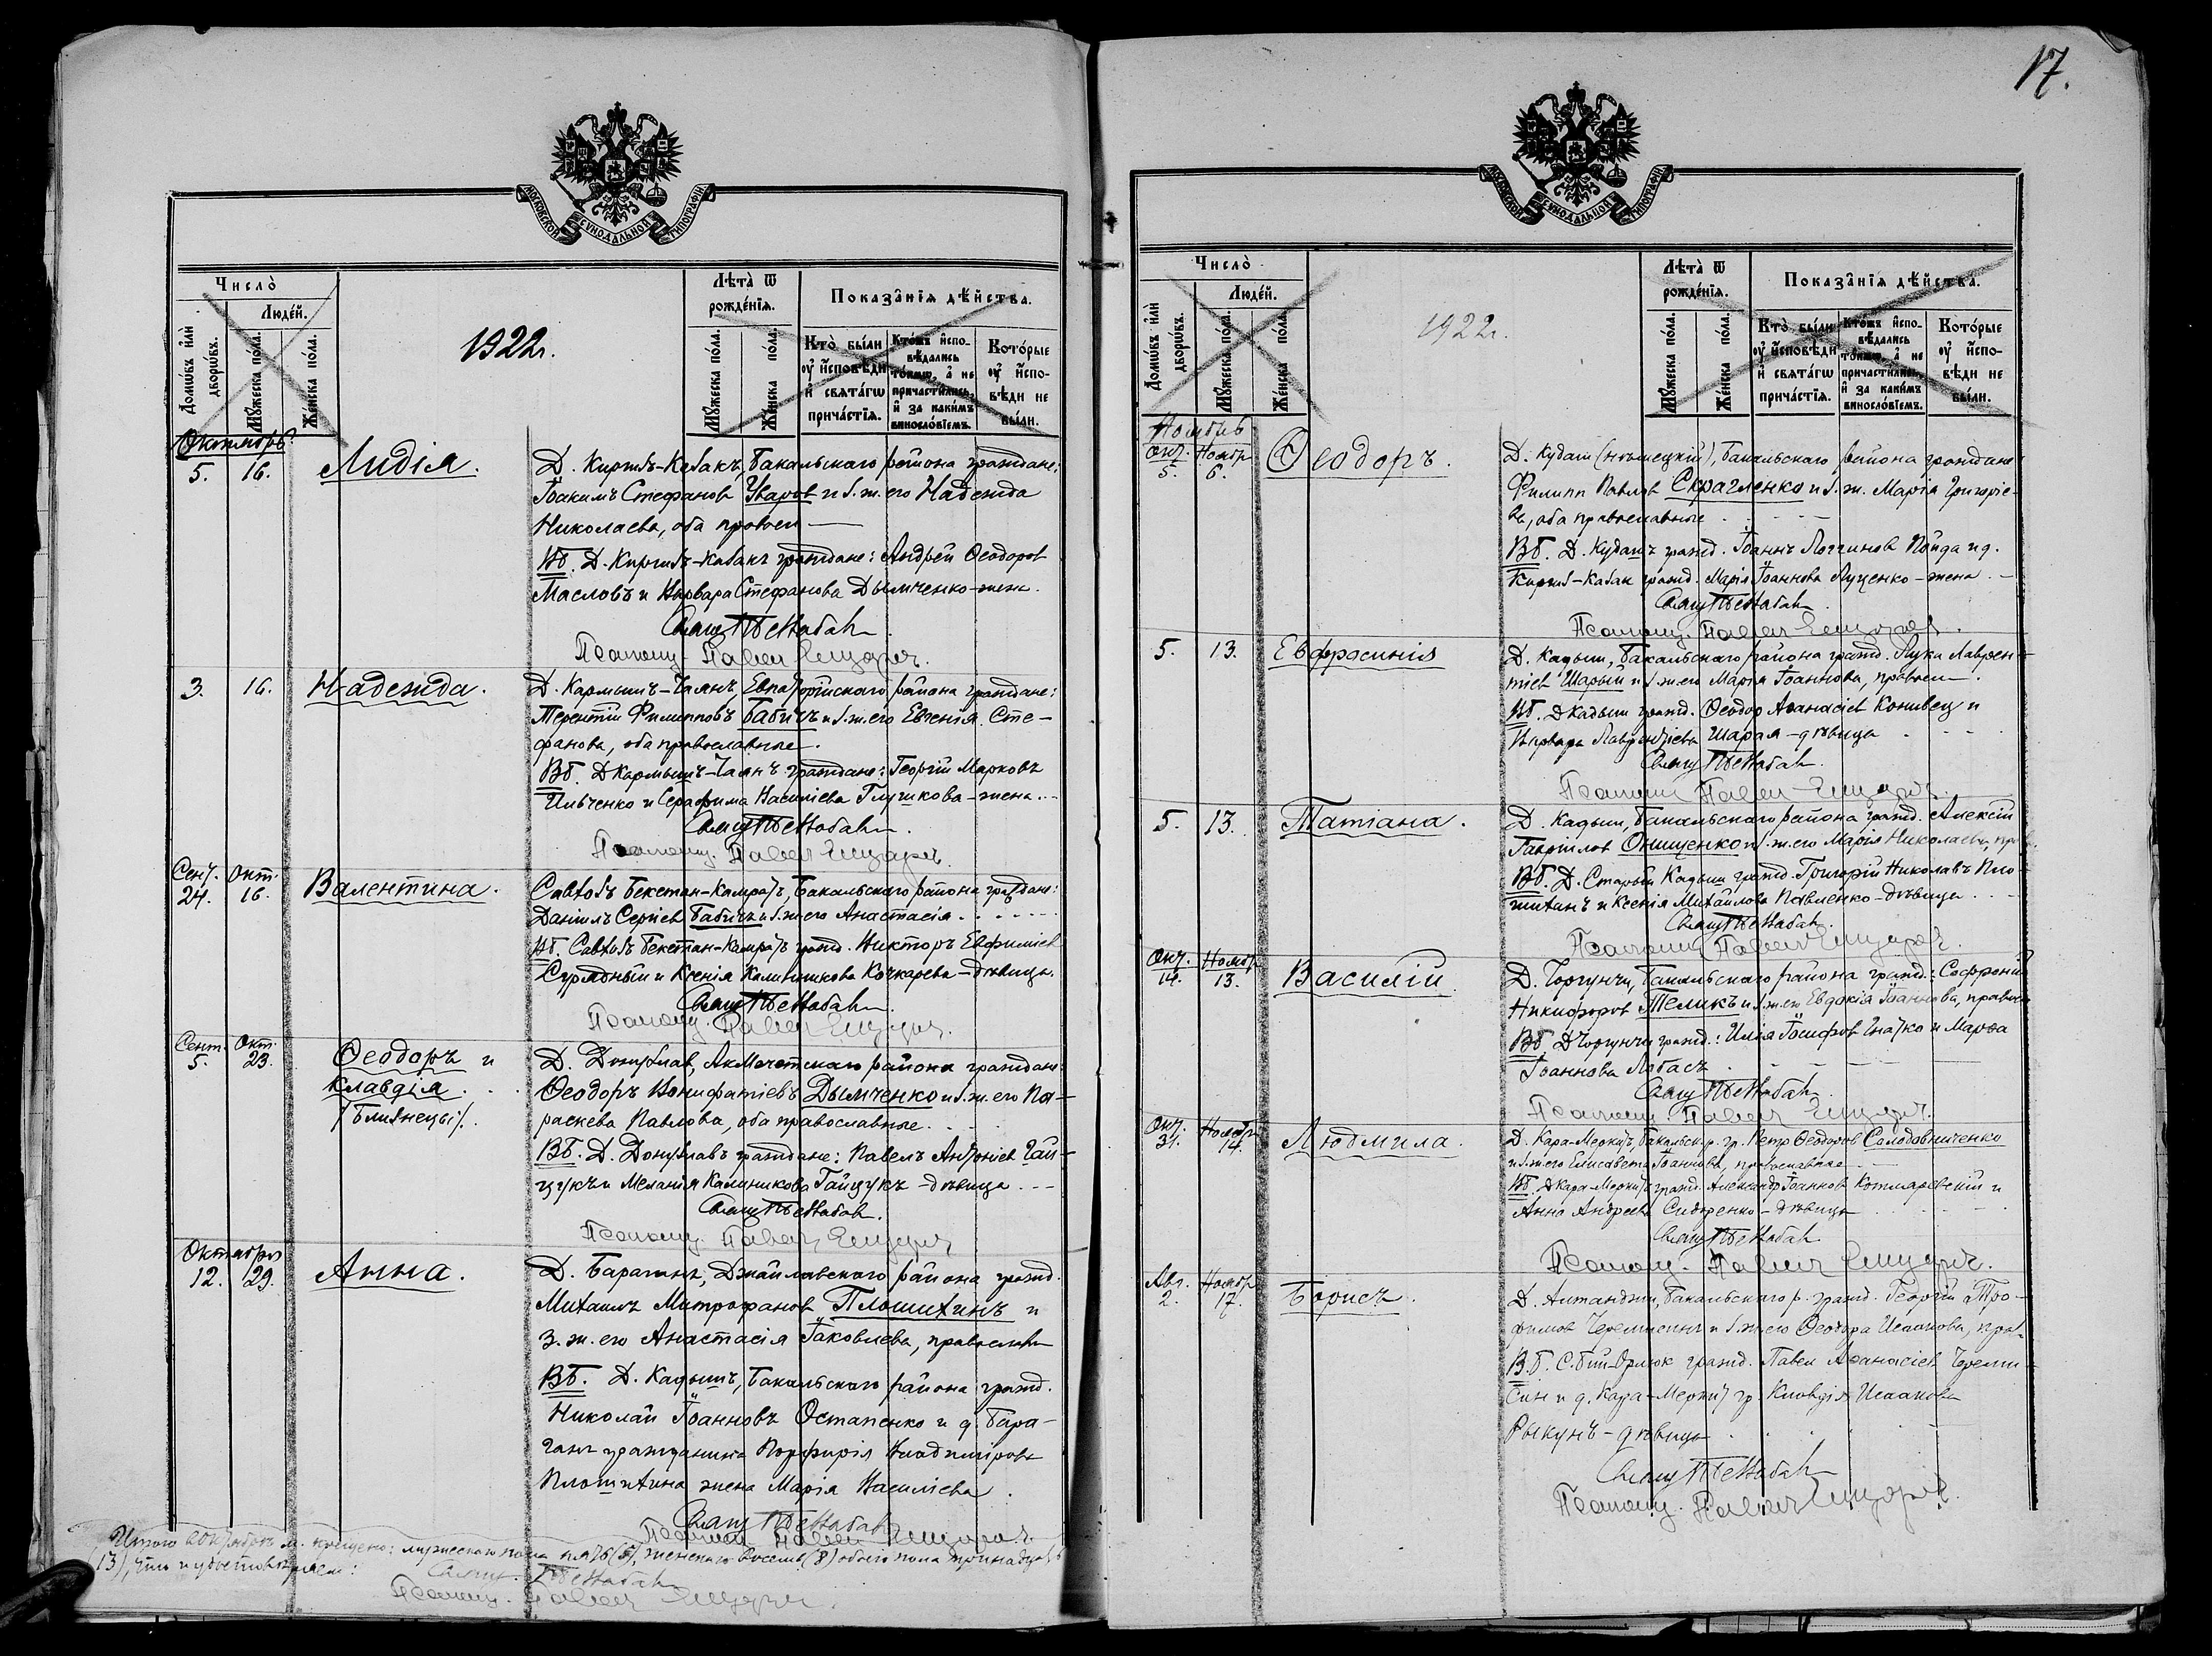 17.
МОСКОВСКОЙ СѴНОДАЛЬНОЙ ТИПОГРАФІИ
Число̀
Людей.
Домѡвъ и҆лѝ дворѡвъ.
Мꙋжеска по́ла.
Же́нска по́ла.
1922г.
Лѣта̀ ѿ рожде́нїѧ.
Мꙋжеска по́ла.
Же́нска по́ла.
Показа̑нїѧ дѣ́йства.
Кто̀ бы́ли ᲂу҆ и҆сповѣди и҆ свѧта́гѡ прича́стїѧ.
Кто́жъ и҆сповѣдались то́кмѡ, а҆ не причастились, и҆ за каки́мъ винословїемъ.
Кото́рые ᲂу҆ и҆сповѣди не бы́ли.
Октябрь
5. 16. Лидія.
Д. Киргизъ-Кабакъ, Бакальскаго района граждане:
Іоакимъ Стефановъ Уваров и з. ж. его Надежда
Николаева, оба правосл
ВБ. Д. Киргизъ-Кабакъ граждане: Андрей Ѳеодоров
Масловъ и Варвара Стефанова Дымченко-жен.
Свящ
Псаломщ. Павел
3. 16. Надежда.
Д. Кармышъ-Чаянъ, Евпаторійскаго района граждане:
Терентій Филипповъ Бабичъ и з. ж. его Евгенія Сте-
фанова, оба православные.
ВБ. Д Кармышъ-Чаянъ граждане: Георгій Марковъ
Ильченко и Серафима Василіева Глушкова-жена.
Свящ
Псаломщ. Павел
Сент. 24. Окт. 16. Валентина.
Савхозъ Бекетан-Камратъ, Бакальскаго района граждане:
Даніилъ Сергіев Бабичъ и з. ж. его Анастасія
ВБ. Савхозъ Бекетан-Камратъ гражд. Викторъ Евфиміев
и Ксенія Калинникова Кочкарева-дѣвица.
Свящ
Псаломщ. Павел
Сент. 5. Окт. 23. Ѳеодоръ и
Клавдія.
/Близнецы/.
Д. Донузлав, АкМечетскаго района граждане:
Ѳеодоръ Вонифатіевъ Дымченко и з. ж. его Па-
раскева Павлова, оба православные.
ВБ. Д. Донузлавъ граждане: Павелъ Антоніев Гай-
цукъ и Меланія Калиникова Гайцукъ-дѣвица
Свящ
Псаломщ. Павел
Октября
12. 29. Анна.
Д. Барагинъ, Джайлавскаго района гражд.
Михаилъ Митрофанов Плошихинъ и
з. ж. его Анастасія Іаковлева, правосл
ВБ. Д. Кадышъ, Бакальскаго района гражд.
Николай Іоанновъ Остапенко и д. Бара-
ган гражданина Порфирія Владимірова
Плошихина жена Марія Василіева.
Свящ
Псаломщ Павел
Итого в Октябрѣ м. крещено: мужескаго пола пять (5), женскаго восемь (8) обоего пола тринадцать
(13), что и удостовѣряем:
Свящ.
Псаломщ. Павел
МОСКОВСКОЙ СѴНОДАЛЬНОЙ ТИПОГРАФІИ
Число̀
Людей.
Домѡвъ и҆лѝ дворѡвъ.
Мꙋжеска по́ла.
Же́нска по́ла.
1922г.
Лѣта̀ ѿ рожде́нїѧ.
Мꙋжеска по́ла.
Же́нска по́ла.
Показа̑нїѧ дѣ́йства.
Кто̀ бы́ли ᲂу҆ и҆сповѣди и҆ свѧта́гѡ прича́стїѧ.
Кто́жъ и҆сповѣдались то́кмѡ, а҆ не причастились, и҆ за каки́мъ винословїемъ.
Кото́рые ᲂу҆ и҆сповѣди не бы́ли.
Ноябрь
Окт. 5. Ноябр 6. Ѳеодоръ.
Д. Кудаш (нѣмецкій), Бакальскаго района граждане
Филипп Павлов Скрагленко и з. ж. Марія Григоріе-
ва, оба православные
ВБ. Д. Кудашъ гражд. Іоаннъ Логгинов Пойда и д.
Киргиз-Кабак гражд. Марія Іоаннова Луценко-жена.
Свящ
Псаломщ. Павел
5. 13. Евфрасинія
Д. Кадыш, Бакальскаго района гражд. Лука Лаврен-
тіев Шарый и з. ж. его Марія Іоаннова, правосл
ВБ. Д Кадыш гражд. Ѳеодор Аѳанасіев Конивец и
Варвара Лаврентіева Шарая-дѣвица
Свящ
Псаломщ Павел
5. 13. Татіана.
Д. Кадыш, Бакальскаго района гражд. Алексій
Гавріилов Онищенко и з. ж. его Марія Николаева, прав
ВБ. Д. Старый Кадыш гражд. Григорій Николавъ Пло-
шихинъ и Ксенія Михайлова Павленко-дѣвица
Свящ
Псаломщ Павел
Окт. 14. Ноябр 13. Василій
Д. Чоргунчи, Бакальскаго района гражд.: Софроній
Никифоров Теликъ и з. ж. его Евдокія Іоаннова, правосл
ВБ Д Чоргунчи гражд.: Илія Іосифов Гнатко и Марѳа
Іоаннова Лобасъ
Свящ
Псаломщ. Павел
Окт. 31. Ноябр 14. Людмила.
Д. Кара-Меркитъ, Бакальск. р. гр. Петр Ѳеодоров Солодовниченко
и з. ж. его Елисавета Іоаннова, православные
ВБ. Д Кара-Меркитъ гражд. Александр Іоаннов Котляревскій и
Анна Андреева Сидоренко-дѣвица
Свящ
Псаломщ. Павел
Авг. 2. Ноябр 17. Борисъ.
Д. Бакальскаго р. гражд. Георгій Тро-
фимов Черемисинъ и з. ж. его Ѳеодора Исаакова, прав
В.Б. С. Бий-Орлюк гражд. Павел Аѳанасіев Череми-
син и д. Кара-Меркит гр. Клавдія Исаакова
Рыкунъ-дѣвица
Свящ
Псаломщ. Павел